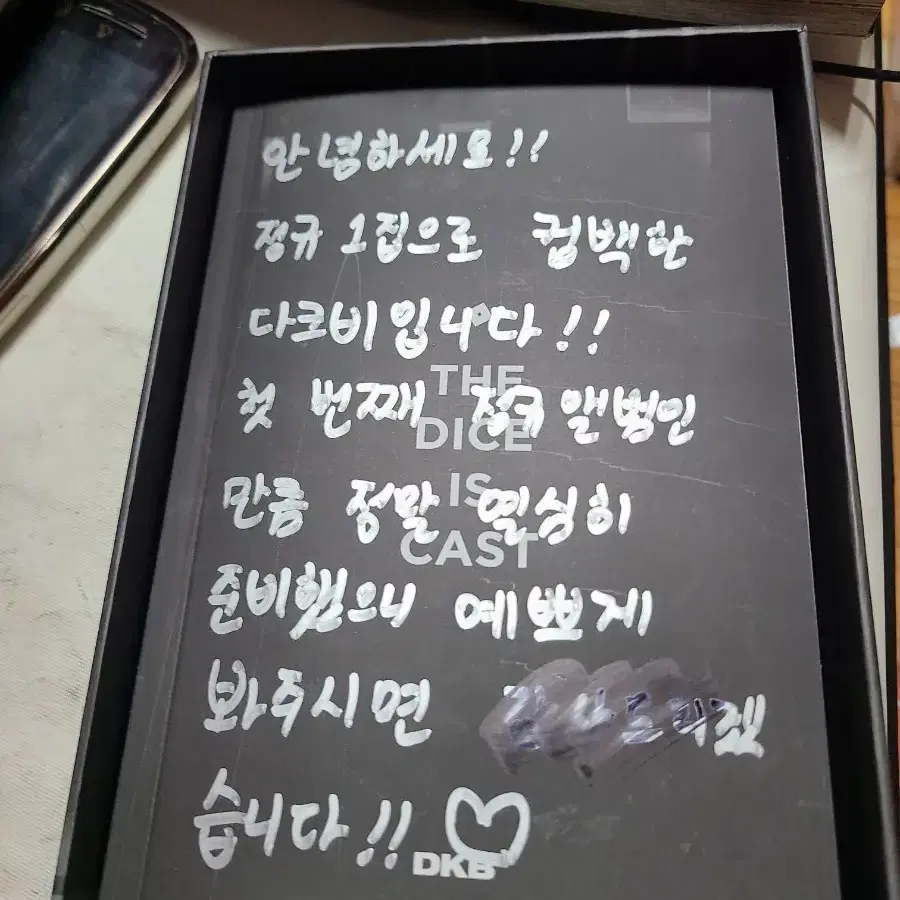 안녕하세요!!
정규 1집으로 컴백한
다크비입니다!!
THE
첫 번째 정규 앨범인
DICE
만큼 정말 열심히
IS
CAST
준비했으니 예쁘게
봐주시면 감사드리겠
습니다!! ♡
DKB